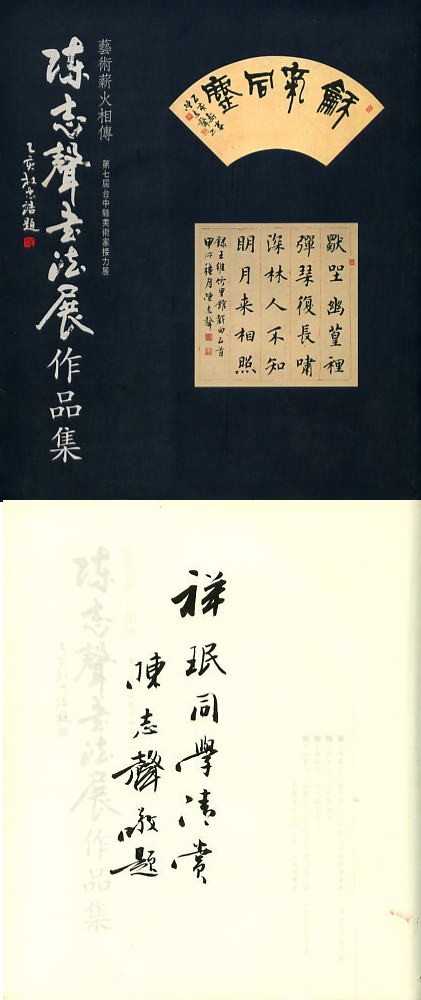 藝術薪火相傳
第七屆台中縣美術家接力展
陳志聲書法展作品集
乙亥杜忠誥題
同塵
獨坐幽篁裡
彈琴復長嘯
深林人不知
明月来相照
錄王維竹里館
甲戌 月陳志聲
祥珉同學清賞
陳志聲敬題